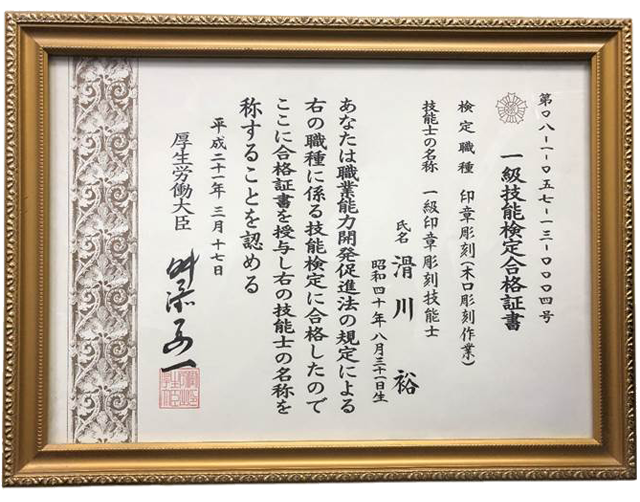 第〇八-一-〇五七-一三-〇〇〇四号
一級技能検定合格証書
検定職種 印章彫刻(木口彫刻作業)
技能士の名称 一級印章彫刻技能士
氏名 滑川 裕
昭和四十年八月三十一日生
あなたは職業能力開発促進法の規定による
右の職種に係る技能検定に合格したので
ここに合格証書を授与し右の技能士の名称を
称することを認める
平成二十一年三月十七日
厚生労働大臣 舛添要一